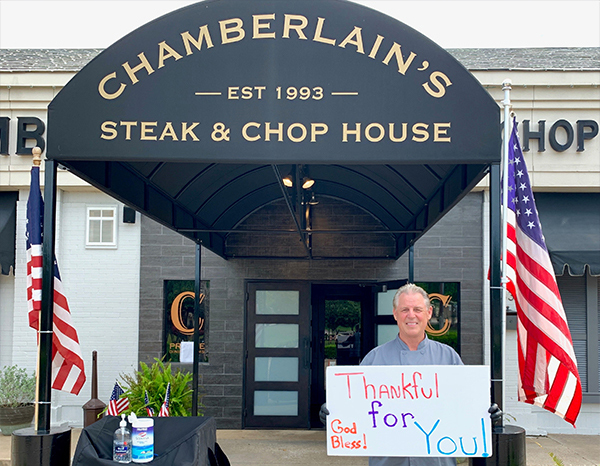 CHAMBERLAIN'S
EST 1993
STEAK & CHOP HOUSE
CHOP
C
C
Thankful
for
God
Bless!
You!